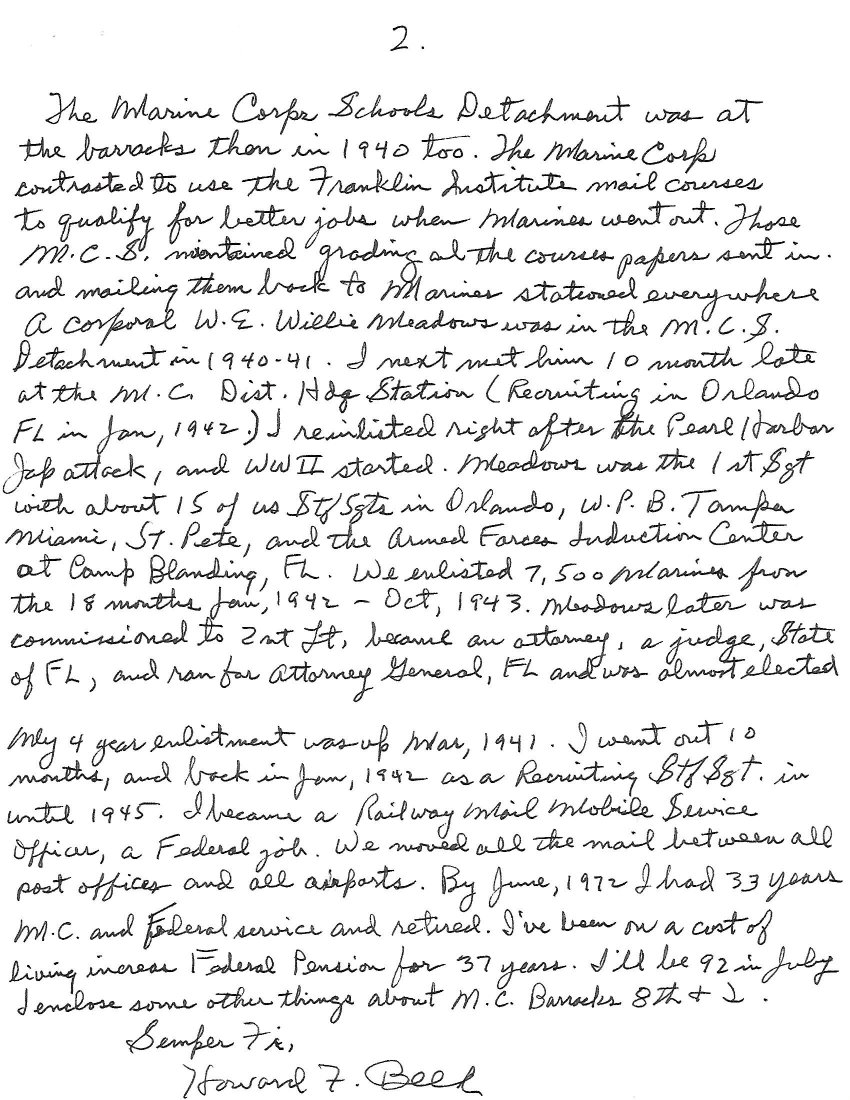 2.
The Marine Corps Schools Detachment was at
the barracks then in 1940 too. The Marine Corp
contrasted to use the Franklin Institute mail courses
to qualify for better jobs when Marines went out. Those
M.C.S. maintained grading al the courses papers sent in.
and mailing them back to Marines stationed everywhere
A corporal W.E. Willie Meadows was in the M.C.S.
Detachment in 1940-41. I next met him 10 month late
at the M.C. Dist. Hdq Station (Recruiting in Orlando
FL in Jan, 1942.) I reinlisted right after the Pearl Harbor
Jap attack, and WW II started. Meadows was the 1st Sgt
with about 15 of us Stf Sgts in Orlando, W.P.B. Tampa
Miami, St. Pete, and the Armed Forces Induction Center
at Camp Blanding, FL. We enlisted 7,500 Marines from
the 18 months Jan, 1942 - Oct, 1943. Meadows later was
commissioned to 2nt Lt, became an attorney, a judge, State
of FL, and ran for Attorney General, FL and was almost elected
My 4 year enlistment was up Mar, 1941. I went out 10
months, and back in Jan, 1942 as a Recruiting Stf Sgt. in
until 1945. I became a Railway Mail Mobile Service
Officer, a Federal job. We moved all the mail between all
post offices and all airports. By June, 1972 I had 33 years
M.C. and Federal service and retired. I've been on a cost of
living increas Federal Pension for 37 years. I'll be 92 in July
I enclose some other things about M.C. Barracks 8th + I.
Semper Fi,
Howard F.